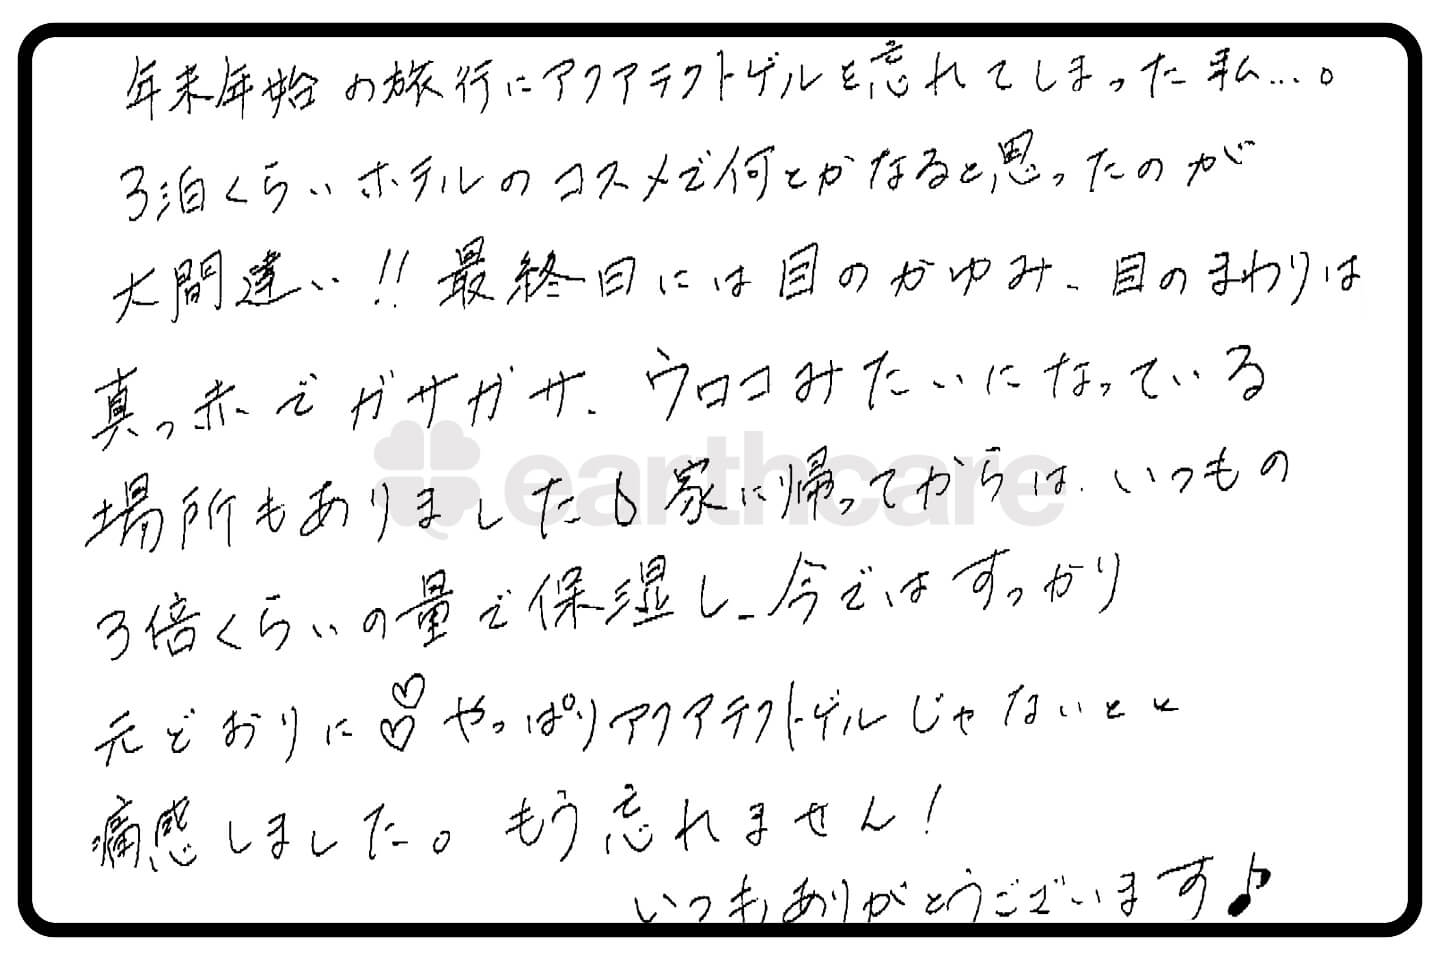 年末年始の旅行にアクアテクトゲルを忘れてしまった私…。
3泊くらいホテルのコスメで何とかなると思ったのが
大間違い!!最終日には目のかゆみ、目のまわりは
真っ赤でガサガサ、ウロコみたいになっている
場所もありました 家に帰ってからは、いつもの
earthcare
3倍くらいの量で保湿し、今ではすっかり
元どおりに♡♡やっぱりアクアテクトゲルじゃないとと
痛感しました。もう忘れません!
いつもありがとうございます♪